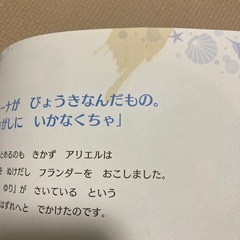 ーナが びょうきなんだもの。
がしに いかなくちゃ」
とめるのも きかず アリエルは
を ぬけだし フランダーを おこしました。
ゆり』が さいている という
はずれへと でかけたのです。